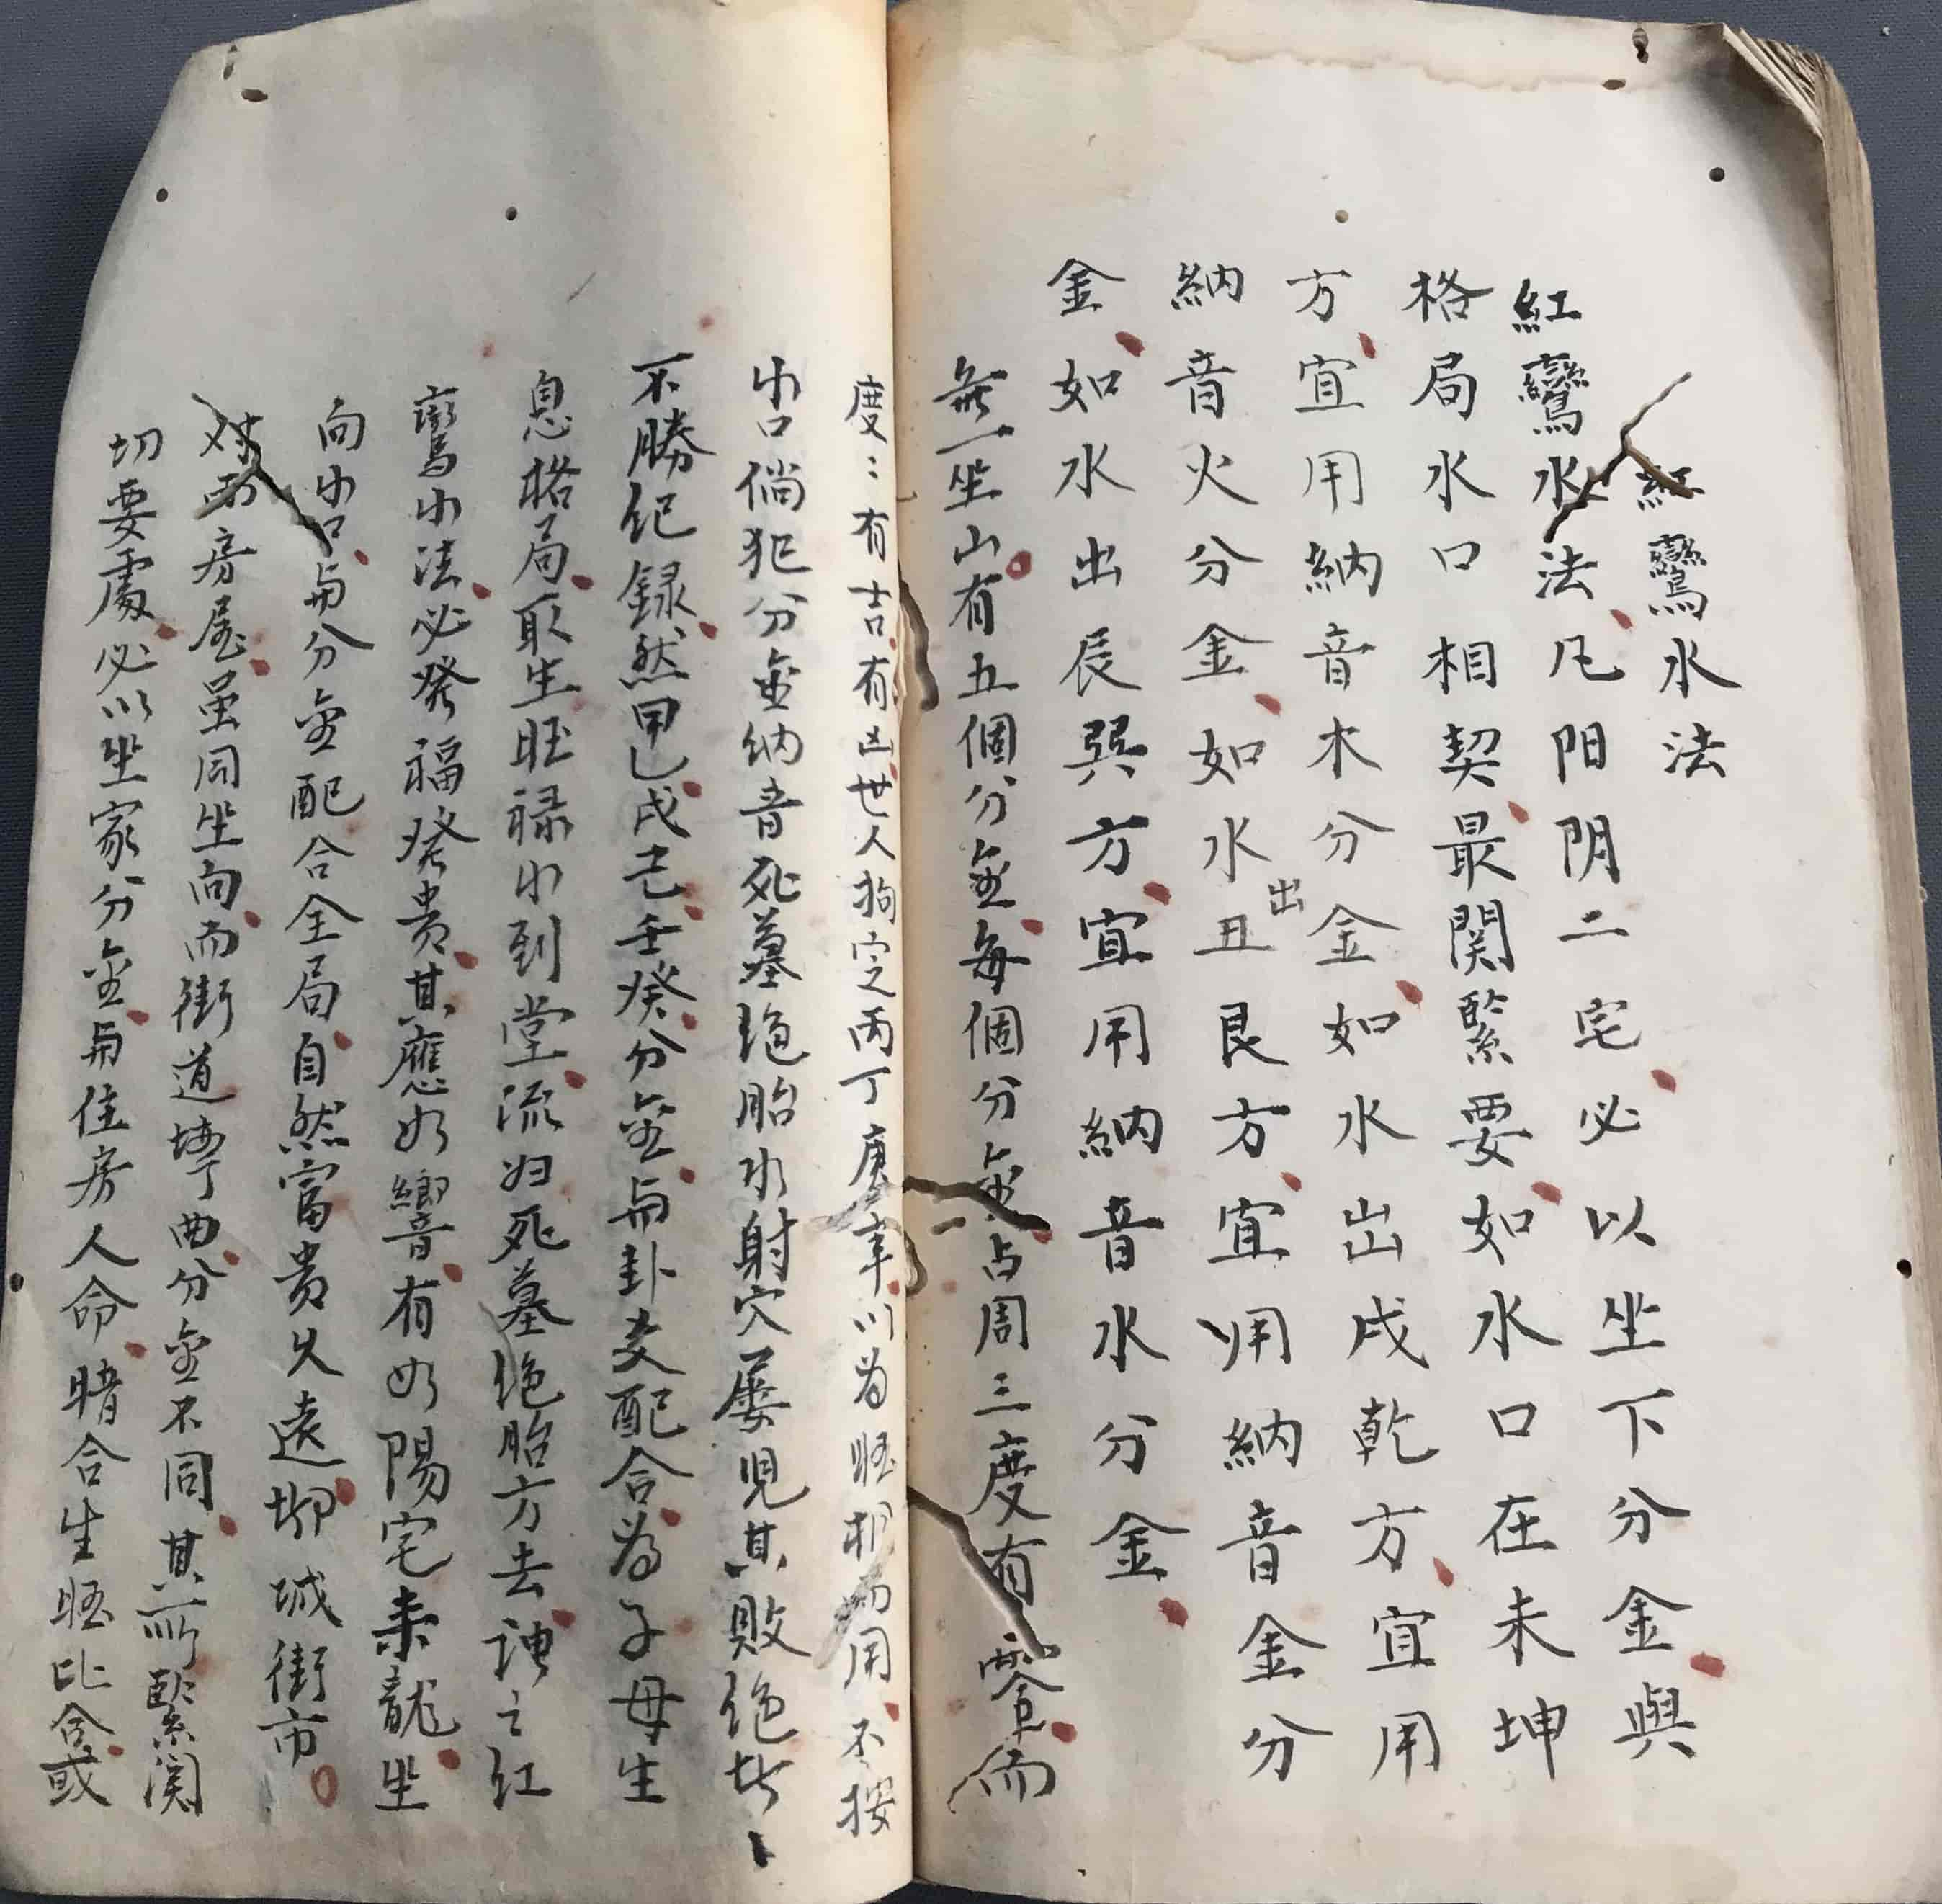 紅鸞水法
紅鸞水法凡阳阴二宅必以坐下分金與
格局水口相契最関緊要如水口在未坤
方宜用納音木分金如水出戌乾方宜用
納音火分金如水出丑艮方宜用納音金分
金如水出辰巽方宜用納音水分金
無一坐山有五個分金每個分金占周三度有零而
度:有吉有凶世人拘定丙丁庚辛以為旺相而用不按
水口倘犯分金纳音死墓绝胎水射穴屡見其敗绝者
不勝纪録然甲乙戌己壬癸分金与卦爻配合為子母生
息格局取生旺禄水到堂流归死墓绝胎方去謂之红
鸞水法必發福發贵其應如響有如陽宅来龍坐
向水口与分金配合全局自然富贵久遠城街市
对面房屋虽同坐向而街道曲分金不同其所緊関
切要處必以坐家分金与住房人命暗合生旺比合或